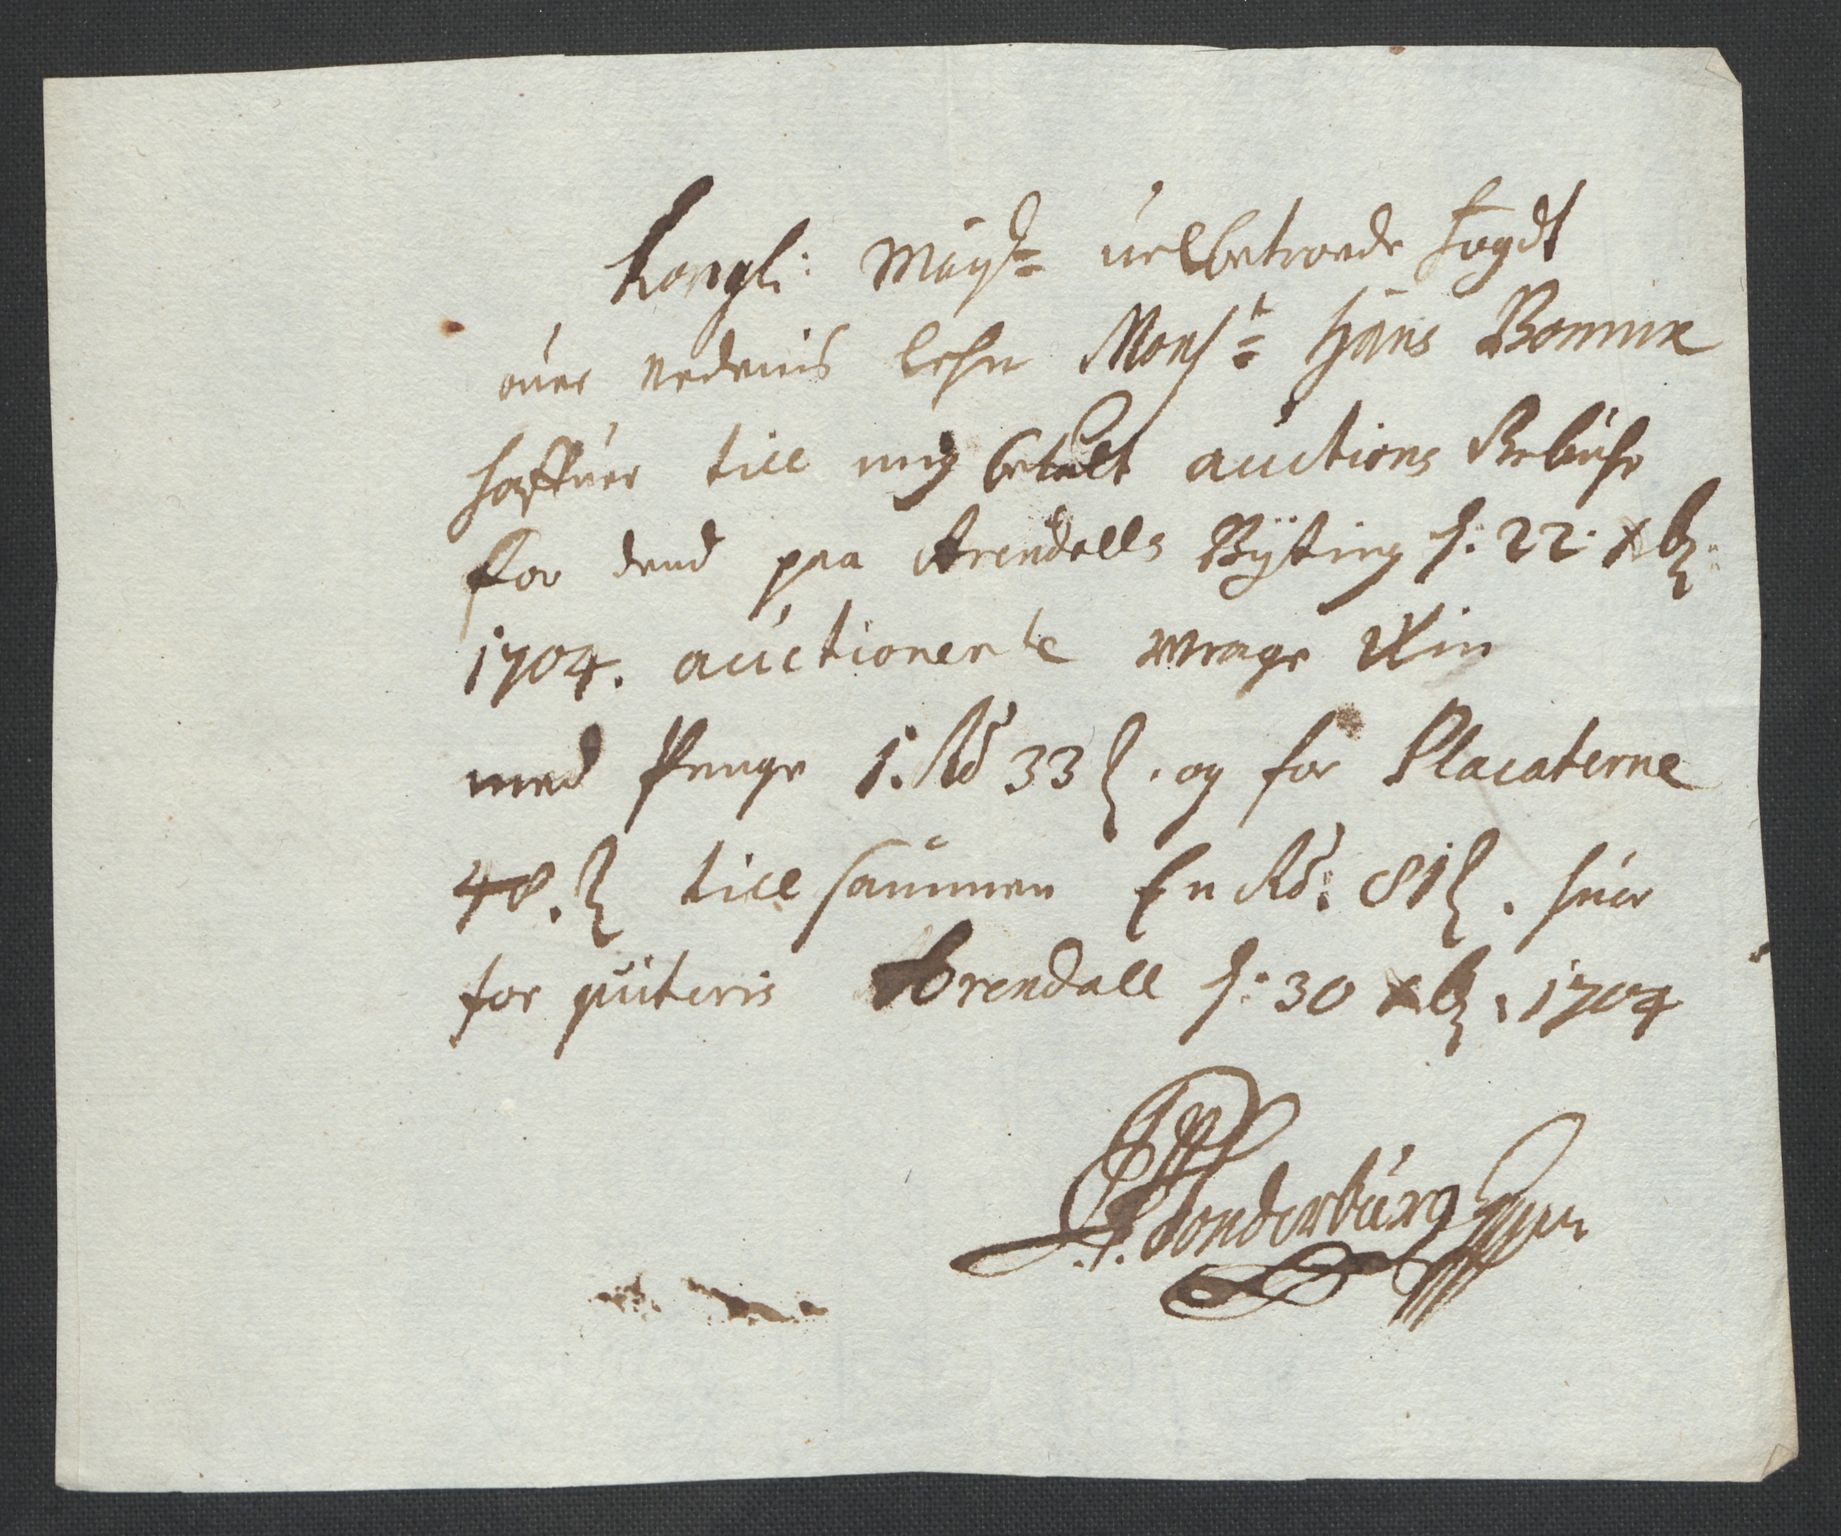 Kongl: Mayts: velbetroede fogdt
over Nedenis lehn Monsr: Hans Bomin
haffver till mig betalt auctions Rebühr
for dend paa Arendalls Byting d: 22. xbr:
1704. auctionerte Wrage Win
med Penge 1. Rd 33 ß. og for Placaterne
48. ß till sammen En Rd: 81 ß. huor
for quiteris Arendall d: 30 xbr. 1704
Sonderburg